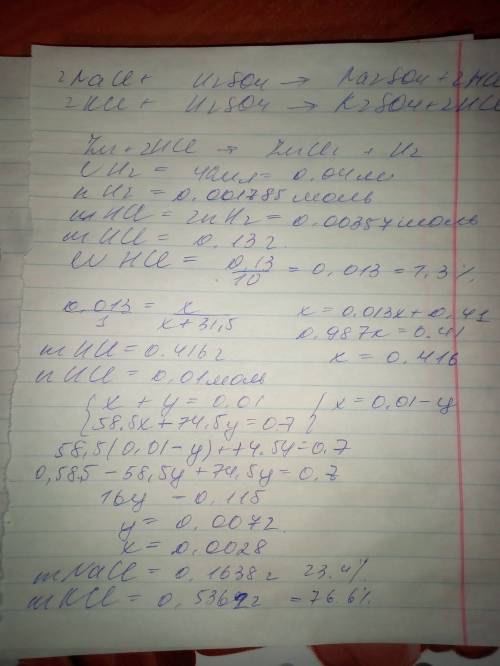 2NaCl + H2SO4 → Na2SO4 + 2HCl
2KCl + H2SO4 → K2SO4 + 2HCl
Zn + 2HCl → ZnCl2 + H2
VH2 = 40мл = 0.04л
nH2 = 0.001785 моль
nHCl = 2nH2 = 0.00357 моль
mHCl = 0.13г
W HCl = 0,13/10 = 0,013 = 1,3%
0,013/1 = x/x+31,5 x = 0.013x + 0.41
0.987x = 0.41
mHCl = 0.416г x = 0.416
nHCl = 0.01 моль
{x + y = 0.01 {x = 0,01-y
58.5x + 74.5y = 0.7
58,5(0,01-y) + 74.5y = 0.7
0,585 - 58,5y + 74.5y = 0,7
16y = 0,115
y = 0.0072
x = 0,0028
mNaCl = 0,1638г 23.4%
mKCl = 0,5362г = 76.6%